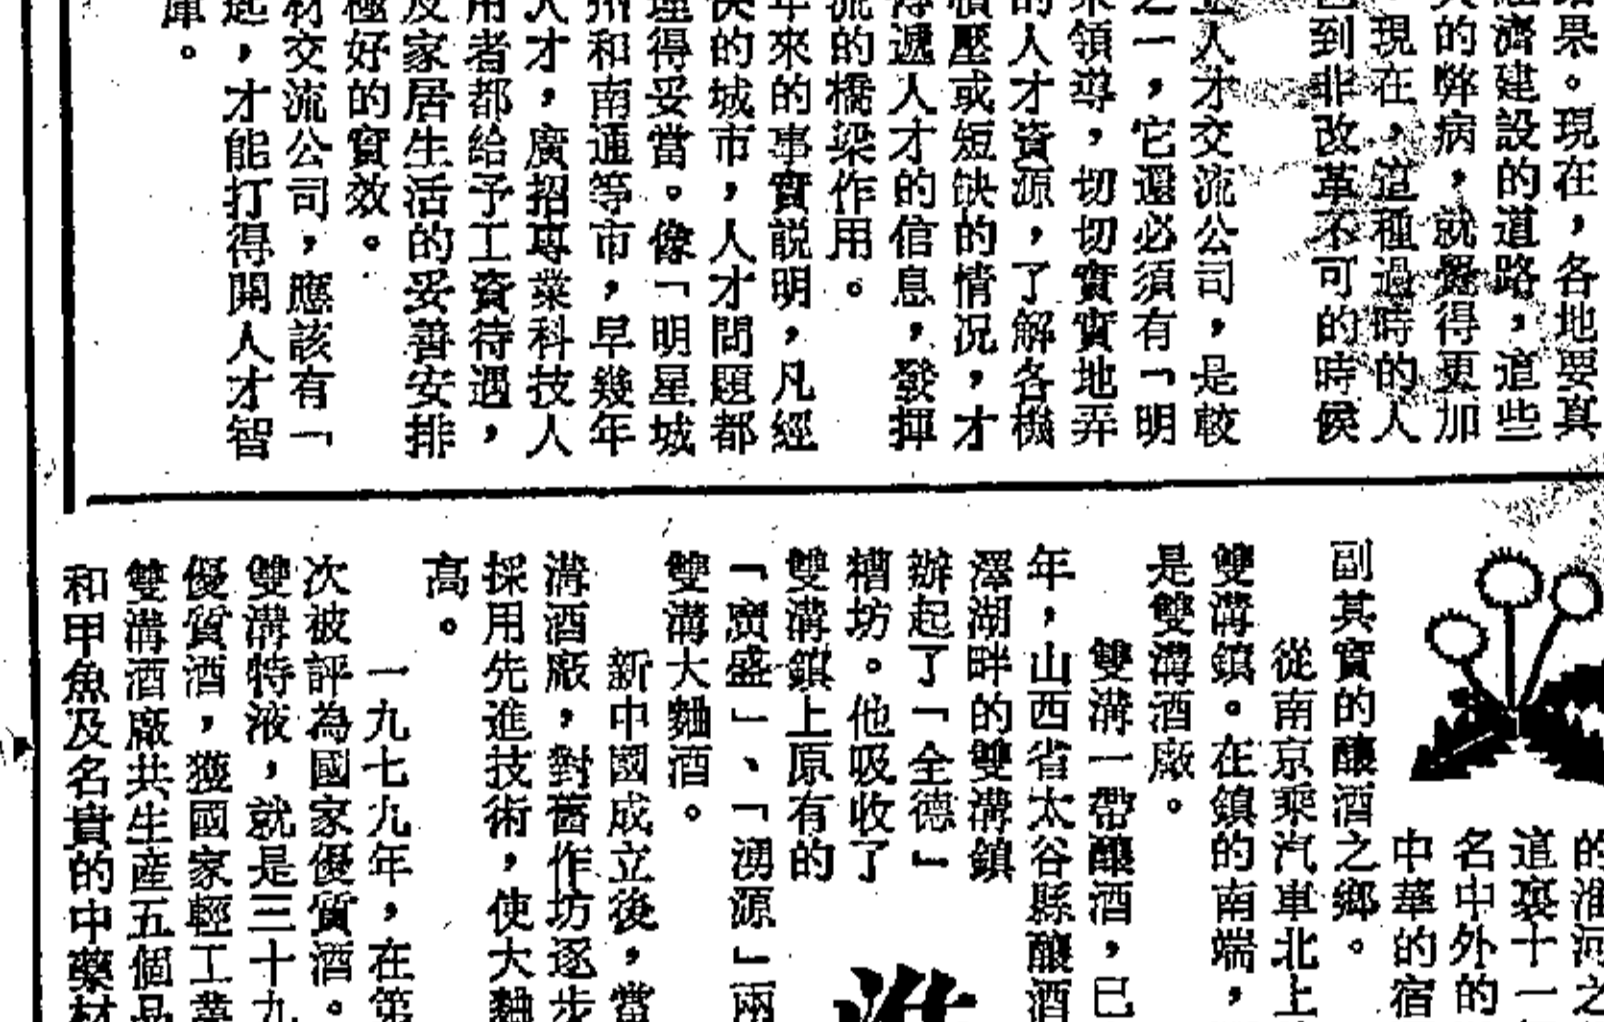 結果。現在，各地要真
經濟建設的道路，這些
的弊病，就覺得更加
現在，這種過時的人
到非改革不可的時候
立人才交流公司，是較
之一，它還必須有「明
來領導，切切實實地弄
的人才資源，了解各機
積壓或短缺的情況，才
傳遞人才的信息，發揮
流的橋梁作用。
年來的事實説明，凡經
快的城市，人才問題都
理得妥當。像「明星城
州和南通等市，早幾年
人才，廣招專業科技人
用者都給予工資待遇，
及家居生活的妥善安排
極好的實效。
材交流公司，應該有「
匙，才能打得開人才智
庫。
的淮河之
道裏十一
名中外的
中華的宿
副其實的釀酒之鄉。
從南京乘汽車北上
雙溝鎮。在鎮的南端，
是雙溝酒廠。
雙溝一帶釀酒，已
年，山西省太谷縣釀酒
澤湖畔的雙溝鎮
辦起了「全德」
糟坊。他吸收了
雙溝鎮上原有的
「廣盛」、「湧源」兩
雙溝大麯酒。
新中國成立後，當
溝酒廠，對舊作坊逐步
採用先進技術，使大麯
高。
一九七九年，在第
次被評為國家優質酒。
雙溝特液，就是三十九
優質酒，獲國家輕工業
雙溝酒廠共生産五個品
和甲魚及名貴的中藥材
淮